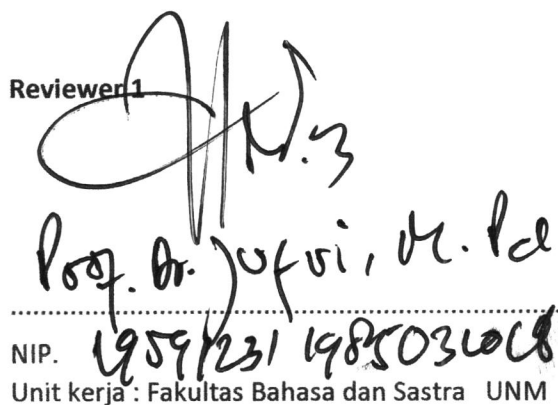 Reviewer 1
Prof. Dr. Jufri, M. Pd
NIP. 19591231 198503 1 018
Unit kerja : Fakultas Bahasa dan Sastra UNM